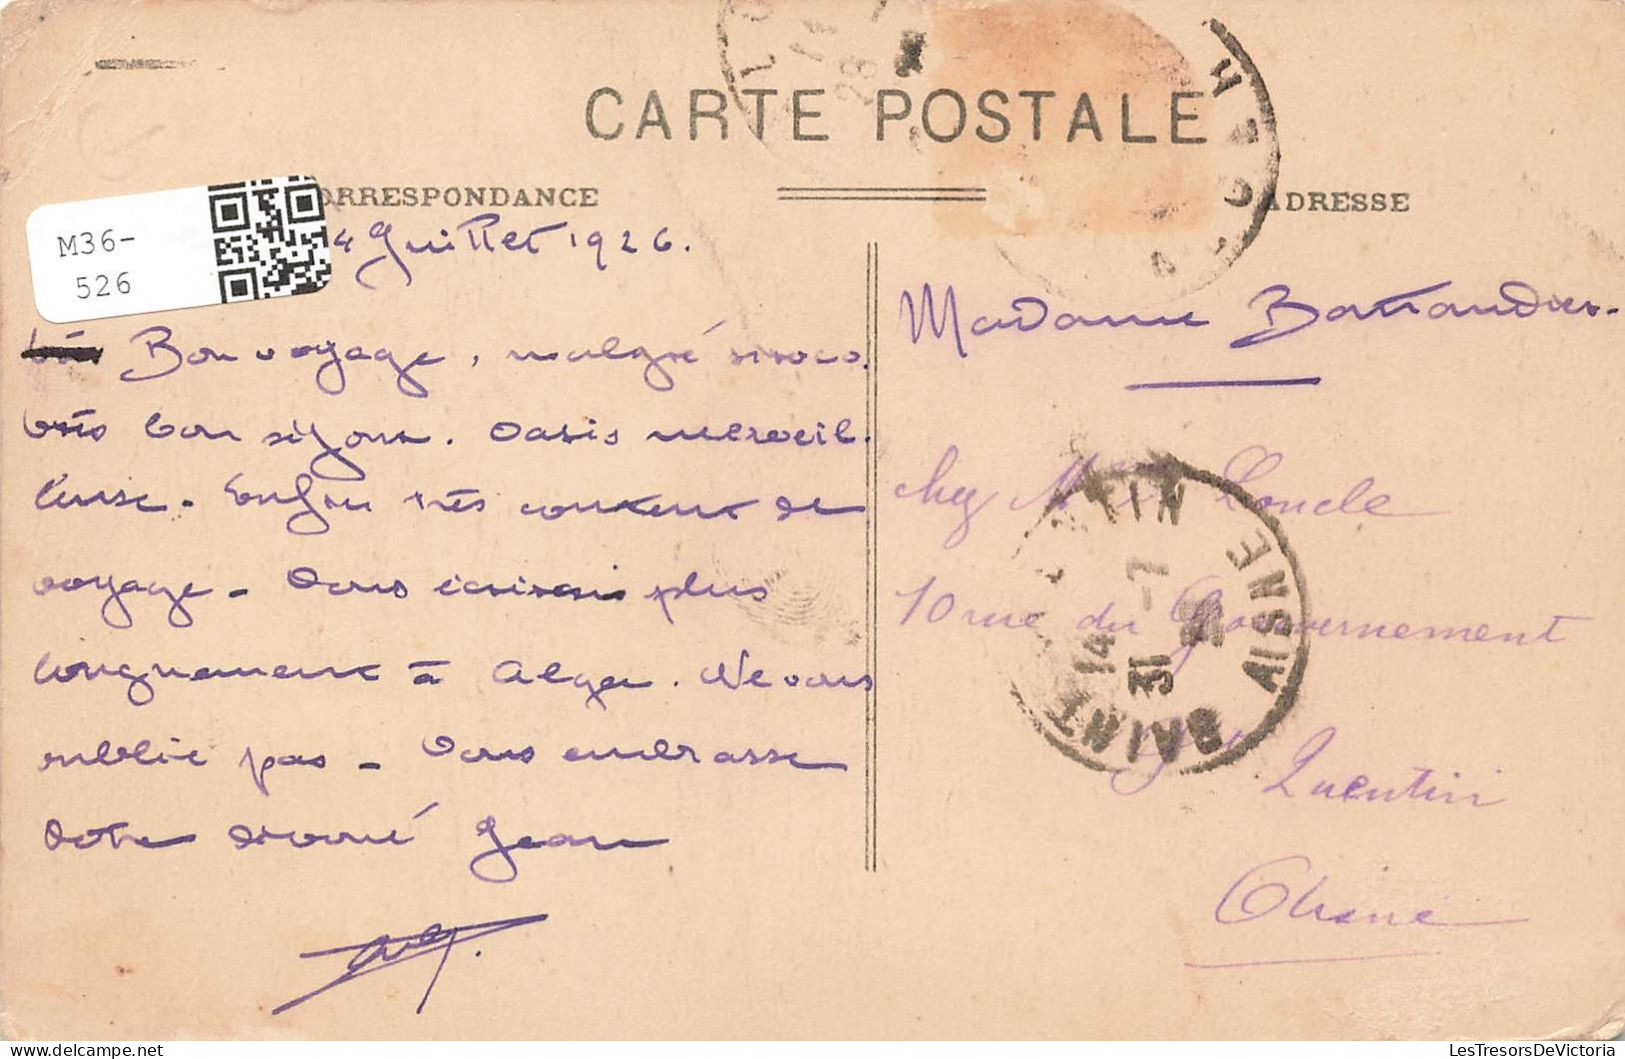 CARTE POSTALE
CORRESPONDANCE
ADRESSE
M36-
526
4 Juillet 1926.
Bon voyage, malgré siroco.
très bon séjour. Oasis merveil.
leuse. Enfin très content de
voyage - Vous écrirai plus
longuement à Alger. Ne vous
oublie pas - Vous embrasse
Votre dévoué Jean
Madame
chez Mme Loncle
10 rue du Gouvernement
St Quentin
Aisne
SAINT QUENTIN
AISNE
14
31 -7
LesTresorsDeVictoria